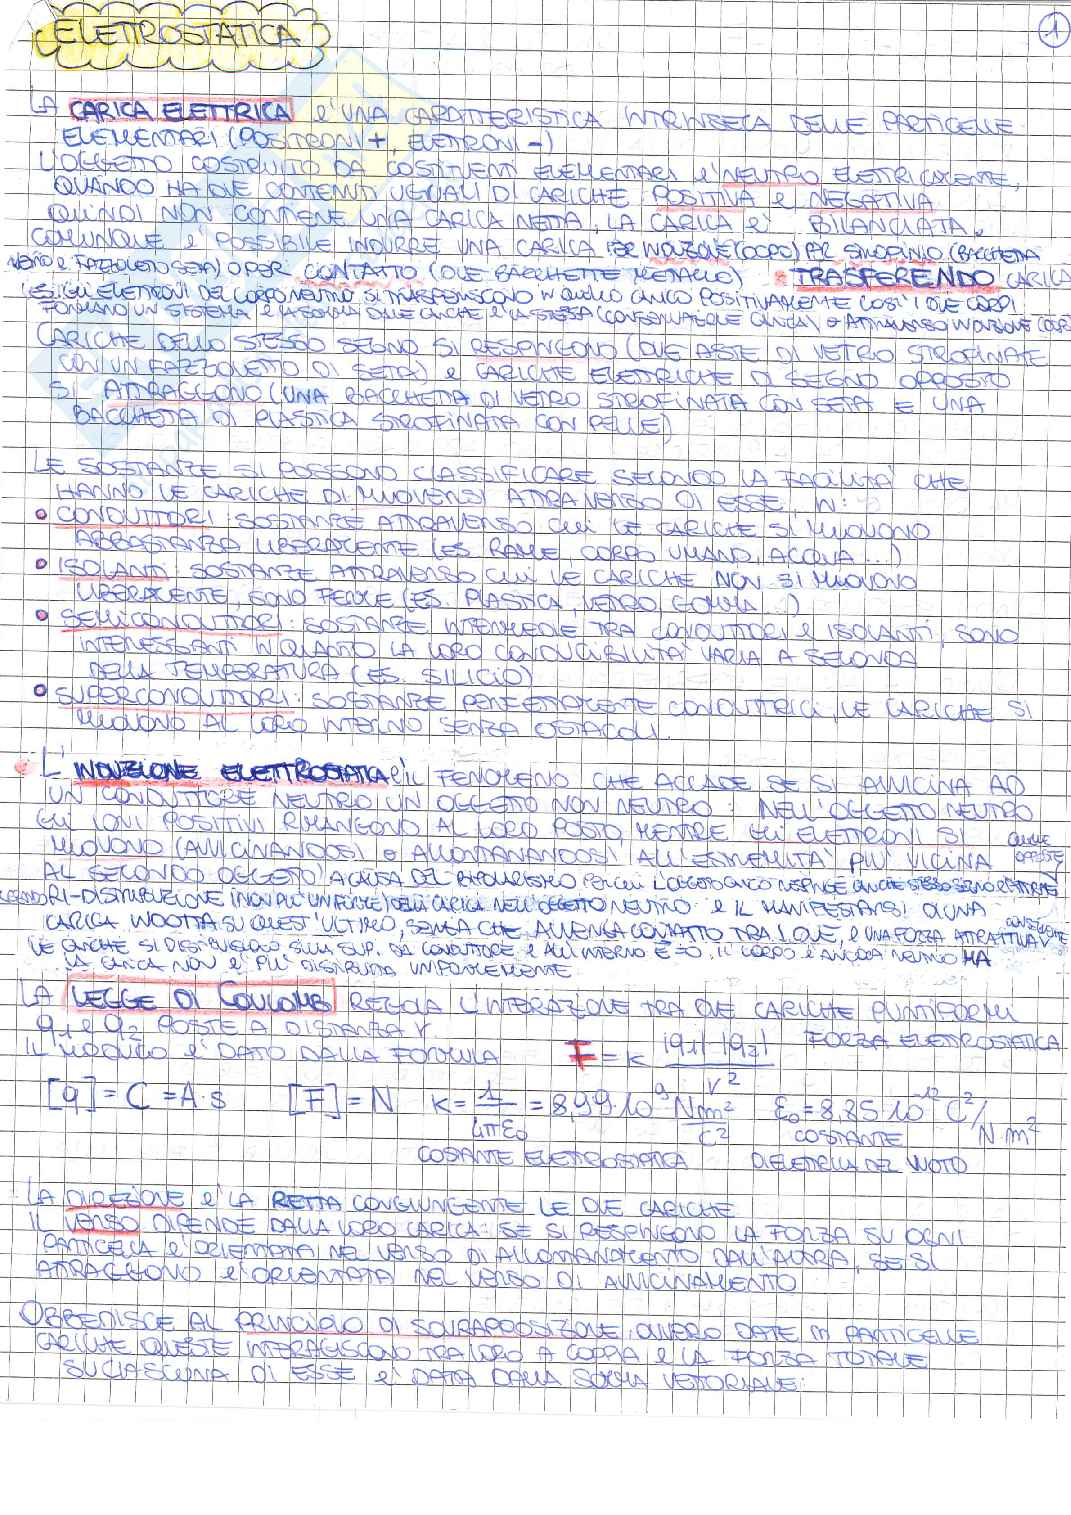 ELETTROSTATICA
1
LA CARICA ELETTRICA è UNA CARATTERISTICA INTRINSECA DELLE PARTICELLE
ELEMENTARI (POSITRONI +, ELETTRONI -)
L'OGGETTO COSTRUITO DA COSTITUENTI ELEMENTARI è NEUTRO ELETTRICAMENTE,
QUANDO HA DUE CONTENUTI UGUALI DI CARICHE POSITIVA e NEGATIVA
QUINDI NON CONTIENE UNA CARICA NETTA, LA CARICA è BILANCIATA.
COMUNQUE è POSSIBILE INDURRE UNA CARICA PER INDUZIONE (DOPO) PER STROFINIO (BACCHETTA
VETRO e FAZZOLETTO SETA) O PER CONTATTO (DUE BACCHETTE METALLO) TRASFERENDO CARICA
(ES: GLI ELETTRONI DEL CORPO NEUTRO SI TRASFERISCONO IN QUELLO CARICO POSITIVAMENTE COSÌ I DUE CORPI
FORMANO UN SISTEMA e LA SOMMA DELLE CARICHE è LA STESSA (CONSERVAZIONE CARICA) o ATTRAVERSO INDUZIONE (DOPO)
CARICHE DELLO STESSO SEGNO SI RESPINGONO (DUE ASTE DI VETRO STROFINATE
CON UN FAZZOLETTO DI SETA) e CARICHE ELETTRICHE DI SEGNO OPPOSTO
SI ATTRAGGONO (UNA BACCHETTA DI VETRO STROFINATA CON SETA E UNA
BACCHETTA DI PLASTICA STROFINATA CON PELLE)
LE SOSTANZE SI POSSONO CLASSIFICARE SECONDO LA FACILITÀ CHE
HANNO LE CARICHE DI MUOVERSI ATTRAVERSO DI ESSE, IN:
• CONDUTTORI: SOSTANZE ATTRAVERSO CUI LE CARICHE SI MUOVONO
ABBASTANZA LIBERAMENTE (ES. RAME, CORPO UMANO, ACQUA ...)
• ISOLANTI: SOSTANZE ATTRAVERSO CUI LE CARICHE NON SI MUOVONO
LIBERAMENTE, SONO FERME (ES. PLASTICA, VETRO, GOMMA ...)
• SEMICONDUTTORI: SOSTANZE INTERMEDIE TRA CONDUTTORI e ISOLANTI, SONO
INTERESSANTI IN QUANTO LA LORO CONDUCIBILITÀ VARIA A SECONDA
DELLA TEMPERATURA (ES. SILICIO)
• SUPERCONDUTTORI: SOSTANZE PERFETTAMENTE CONDUTTRICI, LE CARICHE SI
MUOVONO AL LORO INTERNO SENZA OSTACOLI.
L'INDUZIONE ELETTROSTATICA è IL FENOMENO CHE ACCADE SE SI AVVICINA AD
UN CONDUTTORE NEUTRO UN OGGETTO NON NEUTRO: NELL'OGGETTO NEUTRO
GLI IONI POSITIVI RIMANGONO AL LORO POSTO, MENTRE GLI ELETTRONI SI
MUOVONO (AVVICINANDOSI o ALLONTANANDOSI ALL'ESTREMITÀ PIÙ VICINA
CARICHE OPPOSTE
AL SECONDO OGGETTO) A CAUSA DEL PER CUI L'OGGETTO CARICO RESPINGE CARICHE STESSO SEGNO e ATTRAE
RI-DISTRIBUZIONE (NON PIÙ UNIFORME) DELLA CARICA NELL'OGGETTO NEUTRO e IL MANIFESTARSI DI UNA
CARICA INDOTTA SU QUEST'ULTIMO, SENZA CHE AVVENGA CONTATTO TRA I DUE, e UNA FORZA ATTRATTIVA
LE CARICHE SI DISTRIBUISCONO SULLA SUP. DEL CONDUTTORE e ALL'INTERNO E=0. IL CORPO è ANCORA NEUTRO MA
LA CARICA NON è PIÙ DISTRIBUITA UNIFORMEMENTE
LA LEGGE DI COULOMB REGOLA L'INTERAZIONE TRA DUE CARICHE PUNTIFORMI
q1 e q2 POSTE A DISTANZA r.
IL MODULO è DATO DALLA FORMULA F = k |q1| |q2| / r² FORZA ELETTROSTATICA
[q] = C = A·s [F] = N k = 1/4πε0 = 8,99·10⁹ Nm²/C² ε0 = 8,85·10⁻¹² C²/N·m²
COSTANTE ELETTROSTATICA COSTANTE DIELETTRICA DEL VUOTO
LA DIREZIONE è LA RETTA CONGIUNGENTE LE DUE CARICHE
IL VERSO DIPENDE DALLA LORO CARICA: SE SI RESPINGONO LA FORZA SU OGNI
PARTICELLA è ORIENTATA NEL VERSO DI ALLONTANAMENTO DALL'ALTRA, SE SI
ATTRAGGONO è ORIENTATA NEL VERSO DI AVVICINAMENTO
OBBEDISCE AL PRINCIPIO DI SOVRAPPOSIZIONE, OVVERO DATE n PARTICELLE
CARICHE QUESTE INTERAGISCONO TRA LORO A COPPIA e LA FORZA TOTALE
SU CIASCUNA DI ESSE è DATA DALLA SOMMA VETTORIALE: